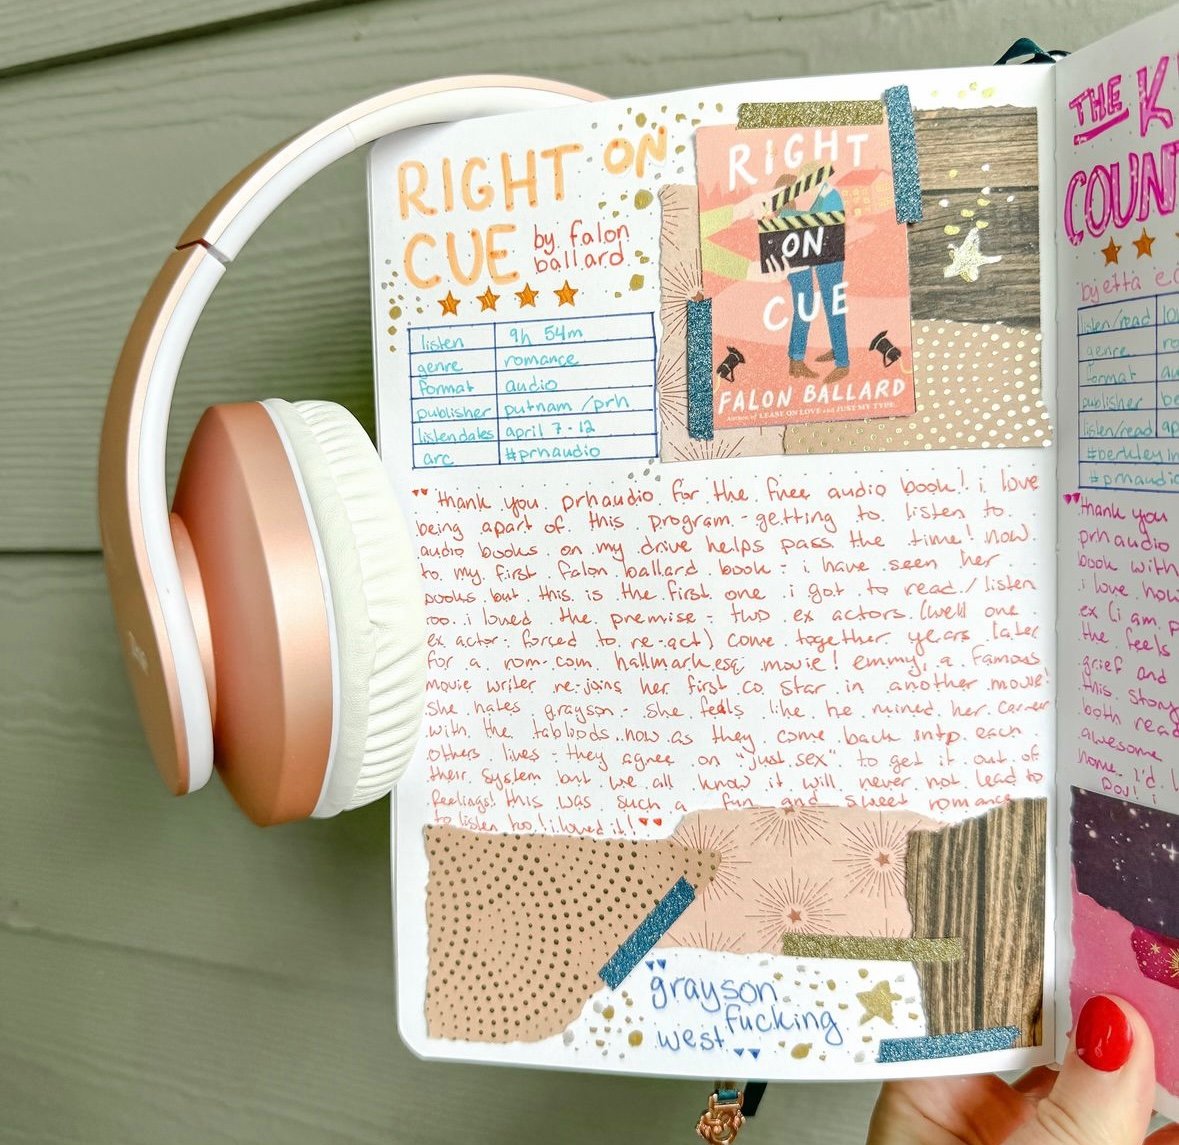 RIGHT ON
CUE by falon
ballard
listen 9h 54m
genre romance
format audio
publisher putnam/prh
listen dates april 7-12
arc #prhaudio
RIGHT
ON
CUE
FALON BALLARD
Author of LEASE ON LOVE and JUST MY TYPE
"thank you prhaudio for the free audio book! i love
being apart of this program - getting to listen to
audio books on my drive helps pass the time! now
to my first falon ballard book - i have seen her
books but this is the first one i got to read/listen
too. i loved the premise - two ex actors (well one
ex actor - forced to re-act) come together years later
for a rom-com hallmark esq movie! emmy, a famous
movie writer re-joins her first co star in another movie!
she hates grayson - she feels like he ruined her career
with the tabloids. now as they come back into each
others lives - they agree on "just sex" to get it out of
their system but we all know it will never not lead to
feelings! this was such a fun and sweet romance
to listen too! i loved it!"
"grayson
fucking
west"
THE K
COUN
by etta
listen/read 10
genre ro
format au
publisher be
listen/read ap
#berkley
#prhaudio
"thank you
prhaudio
book with
i love how
ex (i am
the feels
grief and
this story
both read
awesome
home. i'd